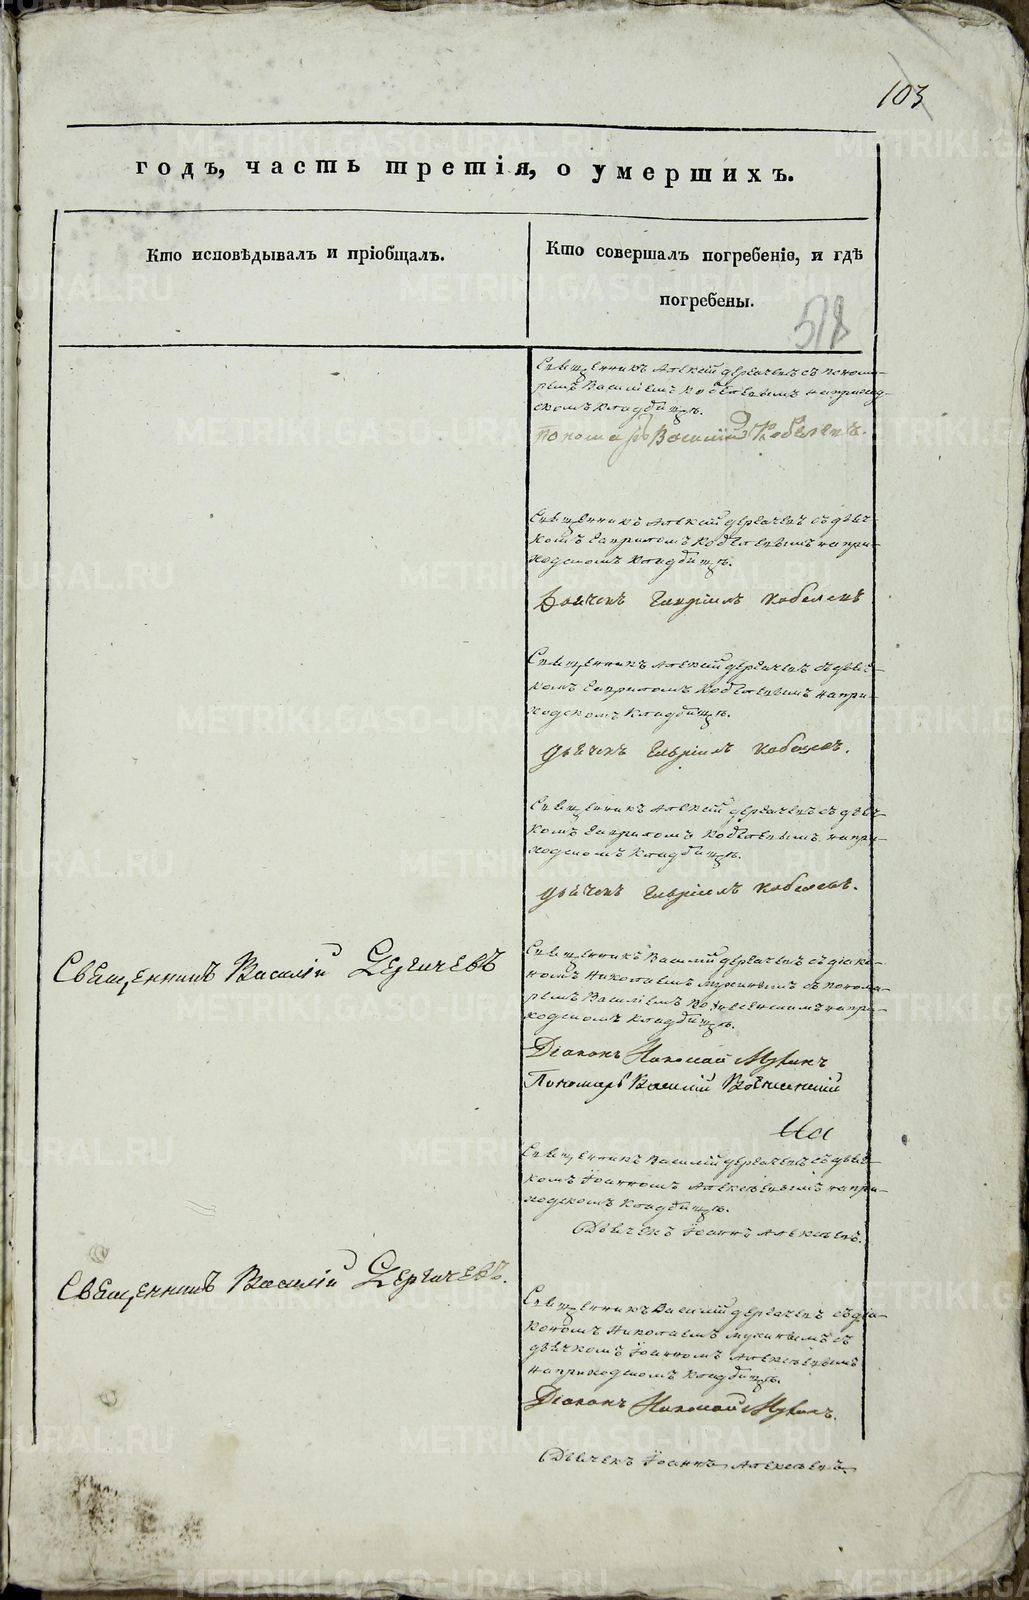 103
годъ, часть третія, о умершихъ.
Кто исповѣдывалъ и пріобщалъ.
Кто совершалъ погребеніе, и гдѣ
погребены.
518
Священникъ Алексій Дергачевъ съ понома-
ремъ Василіемъ на приход-
скомъ кладбищѣ.
Пономарь Василій
Священникъ Алексій Дергачевъ съ дьяч-
комъ Гавриломъ на при-
ходскомъ кладбищѣ.
Дьячекъ Гавріилъ
Священникъ Алексій Дергачевъ съ дьяч-
комъ Гавриломъ на при-
ходскомъ кладбищѣ.
Дьячекъ Гавріилъ
Священникъ Алексій Дергачевъ съ дьяч-
комъ Гавриломъ на при-
ходскомъ кладбищѣ.
Дьячекъ Гавріилъ
Священникъ Василій Дергачевъ
Священникъ Василій Дергачевъ съ діако-
номъ Николаемъ Мухинымъ съ понома-
ремъ Василіемъ на при-
ходскомъ кладбищѣ.
Діаконъ Николай Мухинъ
Пономарь Василій
Священникъ Василій Дергачевъ съ дьяч-
комъ Іоанномъ Алексѣевымъ на при-
ходскомъ кладбищѣ.
Дьячекъ Іоаннъ Алексѣевъ.
Священникъ Василій Дергачевъ.
Священникъ Василій Дергачевъ съ діа-
кономъ Николаемъ Мухинымъ съ
дьячкомъ Іоанномъ Алексѣевымъ
на приходскомъ кладбищѣ.
Діаконъ Николай Мухинъ.
Дьячекъ Іоаннъ Алексѣевъ.
METRIKI.GASO-URAL.RU